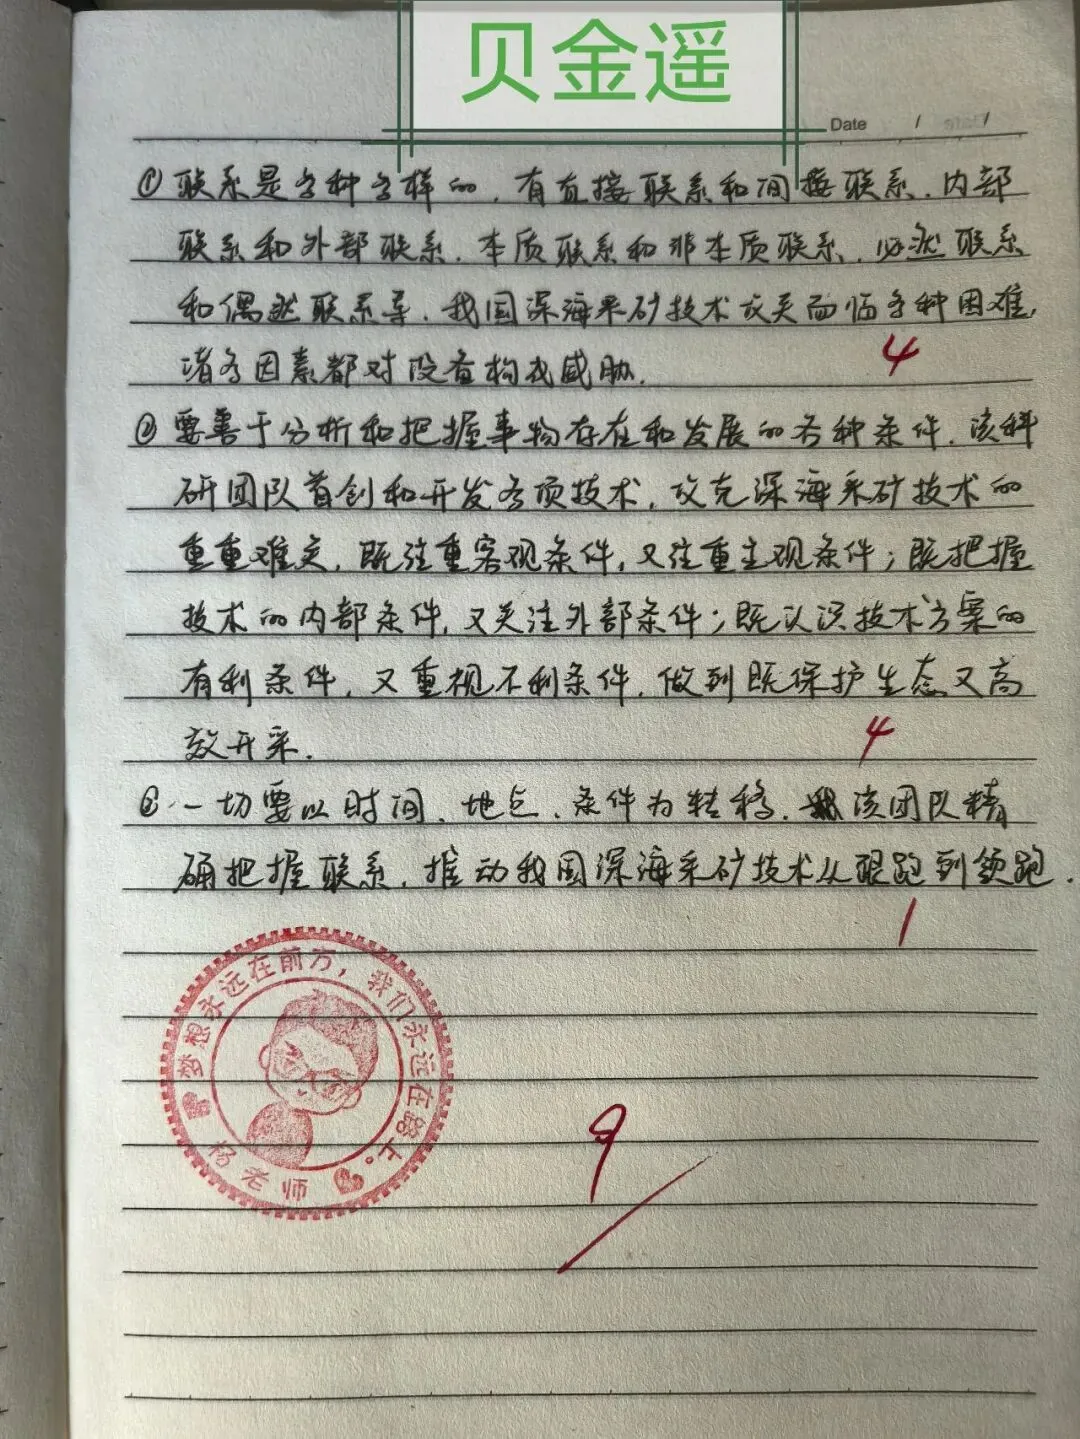 贝金遥
Date / /
①联系是多种多样的，有直接联系和间接联系、内部
联系和外部联系、本质联系和非本质联系、必然联系
和偶然联系等，我国深海采矿技术攻关面临各种困难，
诸多因素都对设备构成威胁.
4
②要善于分析和把握事物存在和发展的各种条件，该科
研团队首创和开发多项技术，攻克深海采矿技术的
重重难关，既注重客观条件，又注重主观条件；既把握
技术的内部条件，又关注外部条件；既认识技术方案的
有利条件，又重视不利条件，做到既保护生态又高
效开采.
4
③一切要以时间、地点、条件为转移，该团队精
确把握联系，推动我国深海采矿技术从跟跑到领跑.
1
梦想永远在前方，我们永远在路上。
杨老师
9